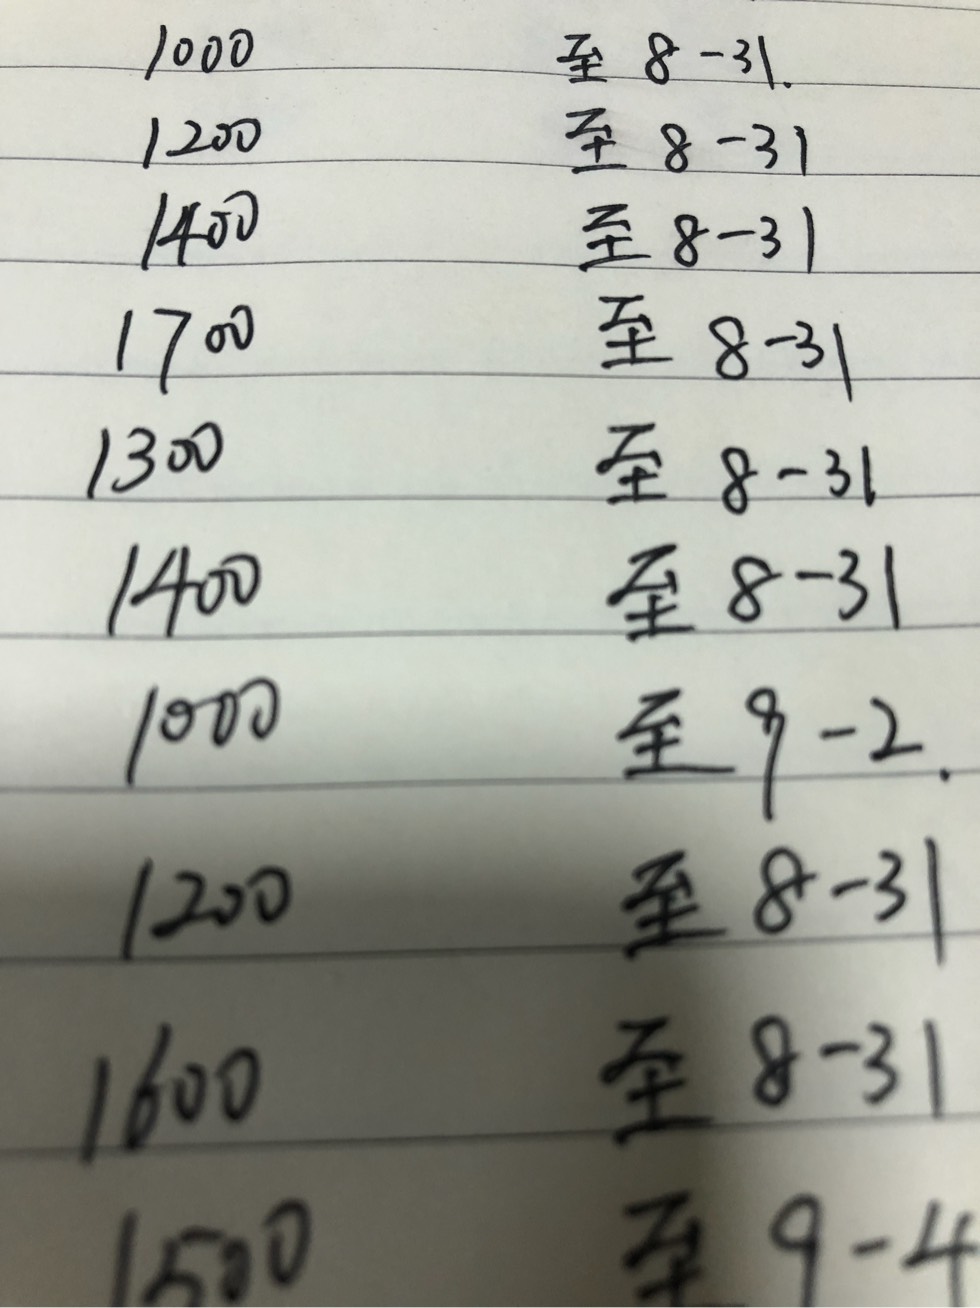 1000 至 8-31.
1200 至 8-31
1400 至 8-31
1700 至 8-31
1300 至 8-31
1400 至 8-31
1000 至 9-2.
1200 至 8-31
1600 至 8-31
1500 至 9-4